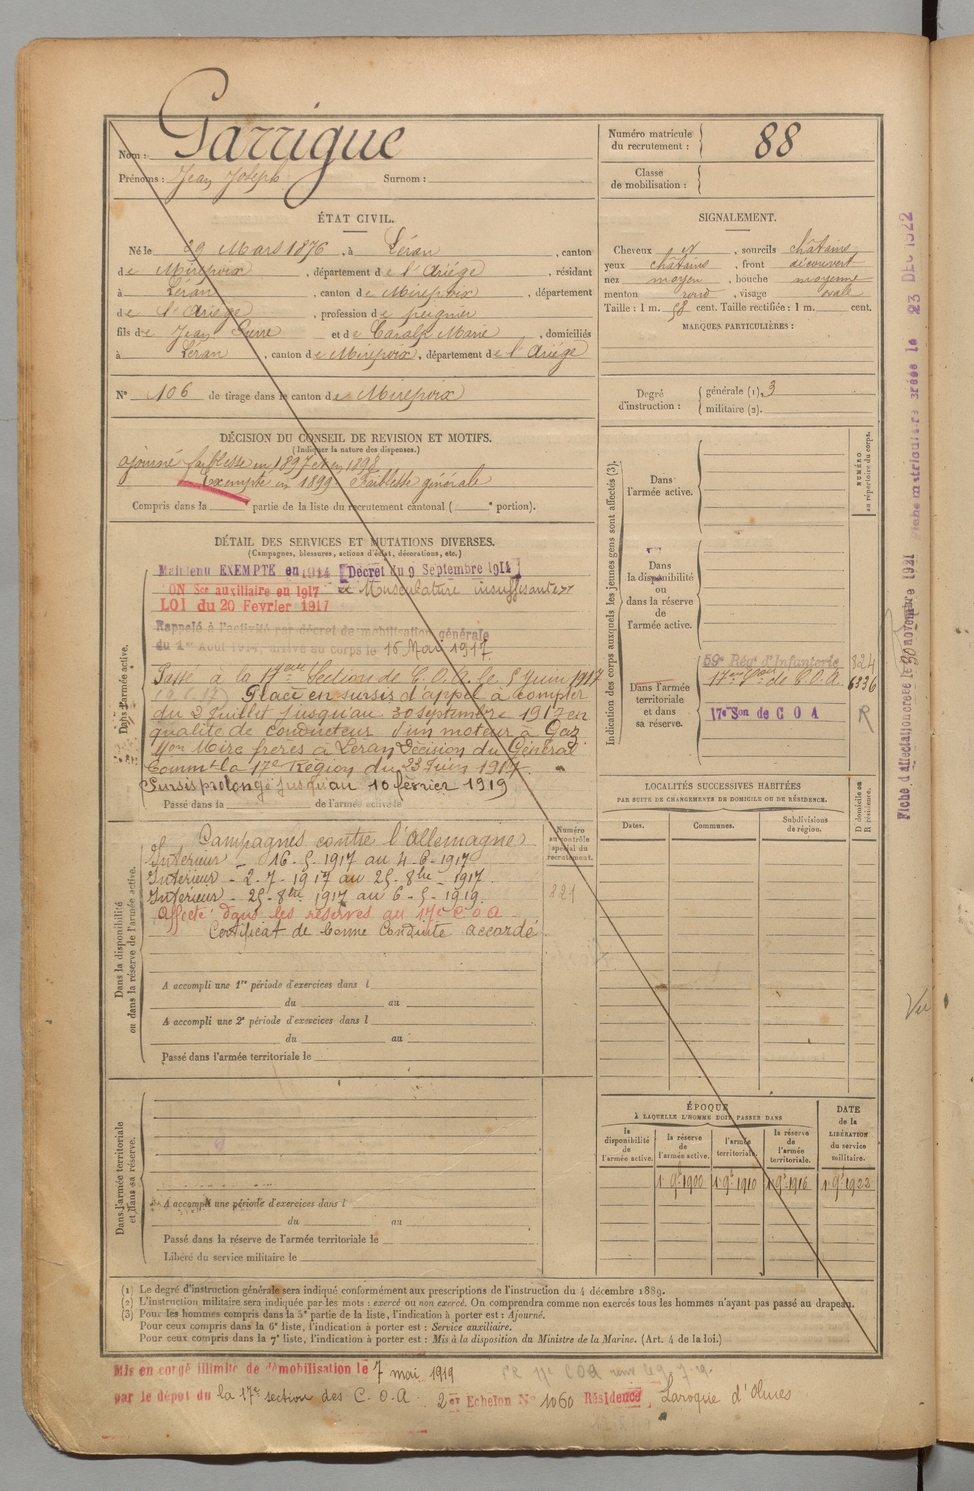 Nom : Garrigue
Prénoms : Jean Joseph Surnom :
Numéro matricule du recrutement : 88
Classe de mobilisation :
ÉTAT CIVIL.
Né le 29 Mars 1876, à Léran, canton
de Mirepoix, département de l'Ariège, résidant
à Léran, canton de Mirepoix, département
de l'Ariège, profession de peignier
fils de Jean Pierre et de Marie, domiciliés
à Léran, canton de Mirepoix, département de l'Ariège
N° 106 de tirage dans le canton de Mirepoix
SIGNALEMENT.
Cheveux et, sourcils châtains
yeux châtains, front découvert
nez moyen, bouche moyenne
menton rond, visage ovale
Taille : 1 m. 58 cent. Taille rectifiée : 1 m. cent.
MARQUES PARTICULIÈRES :
Degré d'instruction : générale (1). 3
militaire (2).
DÉCISION DU CONSEIL DE REVISION ET MOTIFS.
(Indiquer la nature des dispenses.)
ajourné faiblesse en 1897 et en 1898
Exempté en 1899 Faiblesse générale
Compris dans la partie de la liste du recrutement cantonal ( e portion).
DÉTAIL DES SERVICES ET MUTATIONS DIVERSES.
(Campagnes, blessures, actions d'éclat, décorations, etc.)
Dans l'armée active.
Maintenu EXEMPTE en 1914 [Décret du 9 Septembre 1914]
ON Sce auxiliaire en 1917 Musculature insuffisante
LOI du 20 Fevrier 1917
Rappelé à l'activité par décret de mobilisation générale
du 1er Aout 1914, arrivé au corps le 16 Mai 1917.
Passé à la 17ème Section de C.O.A. le 5 Juin 1917
Placé en sursis d'appel à compter
du 2 Juillet jusqu'au 30 septembre 1917 en
qualité de conducteur d'un moteur à Gaz
Mon Mirc frères à Léran Décision du Général
Commt la 17e Région du 23 Juin 1917.
Sursis prolongé jusqu'au 10 février 1919
Passé dans la de l'armée active le
Dans la disponibilité ou dans la réserve de l'armée active.
Numéro au contrôle spécial du recrutement.
221
Campagnes contre l'Allemagne
Intérieur - 16-5-1917 au 4-6-1917
Intérieur - 2-7-1917 au 25-8bre-1917.
Intérieur - 25-8bre 1917 au 6-5-1919.
Affecté dans les réserves au 17e C O A
Certificat de bonne conduite accordé.
A accompli une 1re période d'exercices dans l
du au
A accompli une 2e période d'exercices dans l
du au
Passé dans l'armée territoriale le
Dans l'armée territoriale et dans sa réserve.
A accompli une période d'exercices dans l
du au
Passé dans la réserve de l'armée territoriale le
Libéré du service militaire le
Indication des corps auxquels les jeunes gens sont affectés (3).
NUMÉRO au répertoire du corps.
Dans l'armée active.
Dans la disponibilité ou dans la réserve de l'armée active.
Dans l'armée territoriale et dans sa réserve.
59e Rég d'Infanterie 824
17ème Son de C.O.A. 6336
17e Son de C O A R
LOCALITÉS SUCCESSIVES HABITÉES
PAR SUITE DE CHANGEMENTS DE DOMICILE OU DE RÉSIDENCE.
Dates. Communes. Subdivisions de région.
D domicile ou R résidence.
ÉPOQUE
À LAQUELLE L'HOMME DOIT PASSER DANS
la disponibilité de l'armée active.
la réserve de l'armée active.
l'armée territoriale.
la réserve de l'armée territoriale.
DATE de la LIBÉRATION du service militaire.
1 9bre 1900 1 9bre 1910 1 9bre 1916 1 9bre 1922
(1) Le degré d'instruction générale sera indiqué conformément aux prescriptions de l'instruction du 4 décembre 1889.
(2) L'instruction militaire sera indiquée par les mots : exercé ou non exercé. On comprendra comme non exercés tous les hommes n'ayant pas passé au drapeau.
(3) Pour les hommes compris dans la 5e partie de la liste, l'indication à porter est : Ajourné.
Pour ceux compris dans la 6e liste, l'indication à porter est : Service auxiliaire.
Pour ceux compris dans la 7e liste, l'indication à porter est : Mis à la disposition du Ministre de la Marine. (Art. 4 de la loi.)
Mis en congé illimité de démobilisation le 7 mai 1919
par le dépot du la 17e section des C.O.A. 2er Echelon N° 1060 Résidence, Laroque d'Olmes
Fiche d'affectation créée le 30 novembre 1921 Fiche matriculaire créée le 23 DEC 1922
Vu